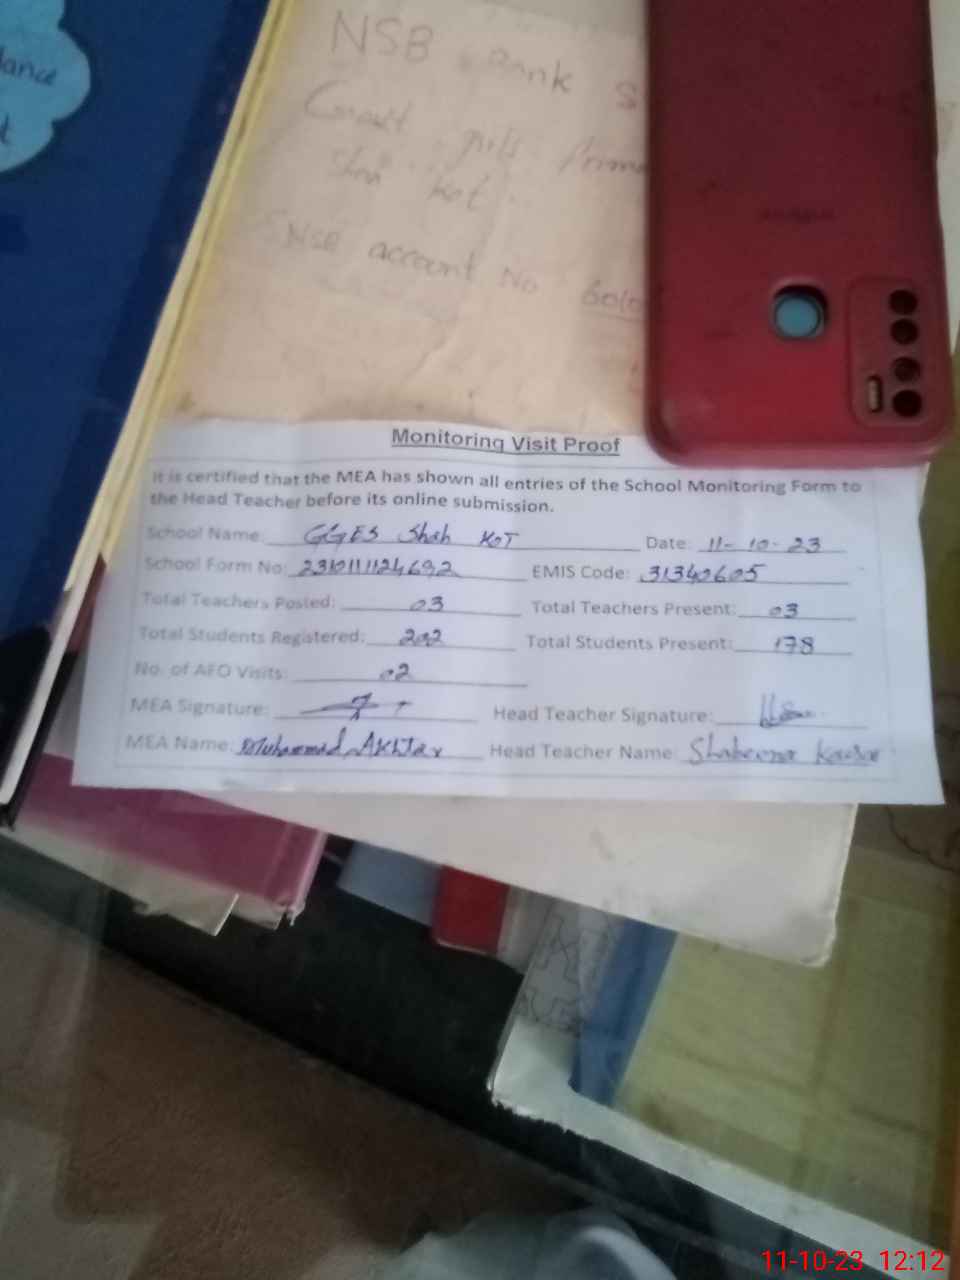 NSB Bank S
Shah Kot
NSB account No 6010
Monitoring Visit Proof
It is certified that the MEA has shown all entries of the School Monitoring Form to
the Head Teacher before its online submission.
School Name: GGES Shah KOT Date: 11-10-23
School Form No: EMIS Code: 31340605
Total Teachers Posted: 03 Total Teachers Present: 03
Total Students Registered: 202 Total Students Present: 178
No. of AEO Visits: 02
MEA Signature: Head Teacher Signature:
MEA Name: Muhammad Akhtar Head Teacher Name: Shaheena Kausar
11-10-23 12:12